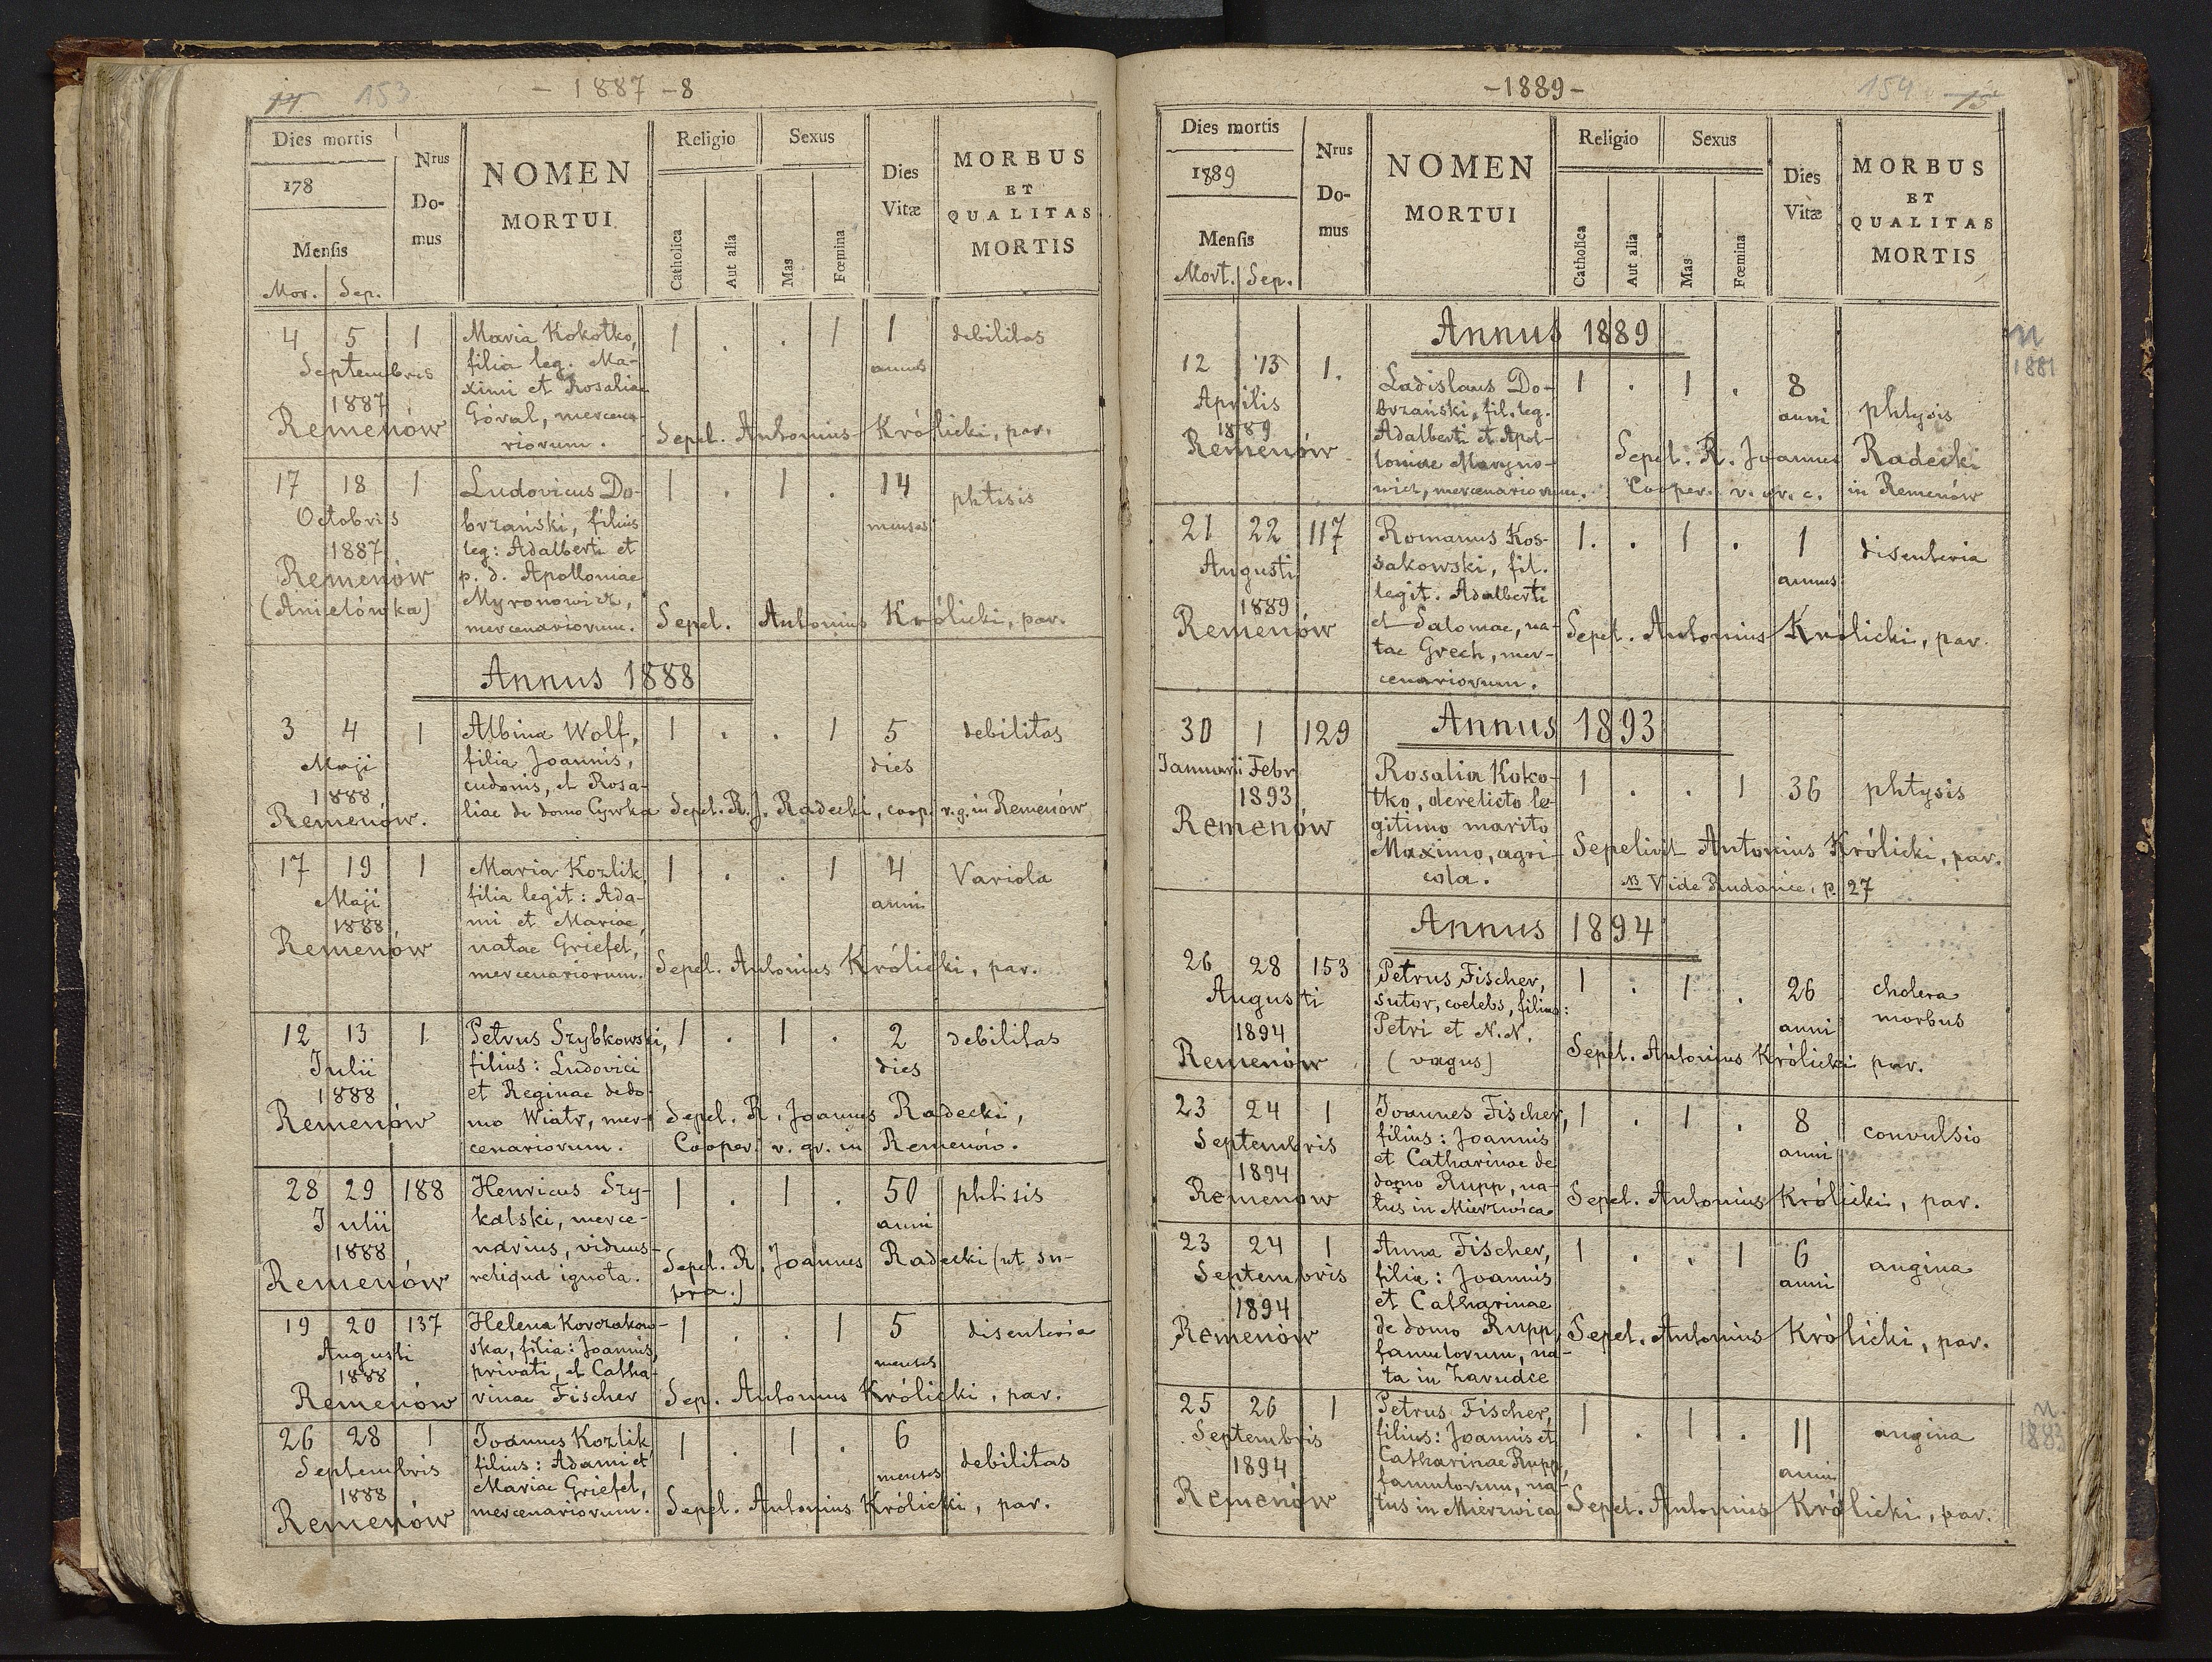 14 153 - 1887 - 8
Dies mortis
178
Mensis
Mor. Sep.
Nrus
Do-
mus
NOMEN
MORTUI
Religio
Catholica
Aut alia
Sexus
Mas
Fœmina
Dies
Vitæ
MORBUS
ET
QUALITAS
MORTIS
4 5 1 Maria Kokotko, 1 . . 1 1 debilitas
filia leg. Ma- annus
Septembris ximi et Rosaliae
1887 Góral, mercena-
Remenów riorum. Sepel. Antonius Królicki, par.
17 18 1 Ludovicus Do- 1 . 1 . 14 phtisis
Octobris brzański, filius menses
1887 leg: Adalberti et
Remenów p. d. Apolloniae
(Anielówka) Myronowicz,
mercenariorum. Sepel. Antonius Królicki, par.
Annus 1888
3 4 1 Albina Wolf, 1 . . 1 5 debilitas
Maji filia Joannis, dies
1888 cudonis, et Rosa-
Remenów. liae de domo Cywka Sepel. R. J. Radecki, coop. r. g. in Remenów
17 19 1 Maria Kozlik, 1 . . 1 4 Variola
Maji filia legit: Ada- anni
1888 mi et Mariae,
Remenów natae Griefel,
mercenariorum. Sepel. Antonius Królicki, par.
12 13 1 Petrus Szybkowski, 1 . 1 . 2 debilitas
Julii filius: Ludovici dies
1888 et Reginae de do-
Remenów mo Wiatr, mer- Sepel. R. Joannes Radecki,
cenariorum. Cooper. r. gr. in Remenów.
28 29 188 Henricus Szy- 1 . 1 . 50 phtisis
Julii kalski, merce- anni
1888 narius, viduus-
Remenów reliqua ignota. Sepel. R. Joannes Radecki (ut su-
pra.)
19 20 137 Helena Korczakow- 1 . . 1 5 disenteria
Augusti ska, filia: Joannis, menses
1888 privati, et Catha-
Remenów rinae Fischer Sep. Antonius Królicki, par.
26 28 1 Joannes Kozlik, 1 . 1 . 6 debilitas
Septembris filius: Adami et menses
1888 Mariae Griefel,
Remenów mercenariorum. Sepel. Antonius Królicki, par.
- 1889 - 154 15
Dies mortis
1889
Mensis
Mort. Sep.
Nrus
Do-
mus
NOMEN
MORTUI
Religio
Catholica
Aut alia
Sexus
Mas
Fœmina
Dies
Vitæ
MORBUS
ET
QUALITAS
MORTIS
Annus 1889
n
1881
12 13 1. Ladislaus Do- 1 . 1 . 8 phtysis
Aprilis brzański, fil. leg. anni
1889 Adalberti et Apol-
Remenów loniae Maryno- Sepel. R. Joannes Radecki
wicz, mercenariorum. Cooper. r. gr. c. in Remenów
21 22 117 Romanus Kos- 1. . 1 . 1 disenteria
Augusti sakowski, fil. annus
legit. Adalberti
1889 et Salomae, na-
Remenów tae Grech, mer- Sepel. Antonius Królicki, par.
cenariorum.
Annus 1893
30 1 129 Rosalia Koko- 1 . . 1 36 phtysis
Januarii Febr tko, derelicto le-
1893 gitimo marito
Remenów Maximo, agri- Sepelivit Antonius Królicki, par.
cola. NB Vide Rudańce, p. 27
Annus 1894
26 28 153 Petrus Fischer, 1 . 1 . 26 cholera
Augusti sutor, coelebs, filius: anni morbus
1894 Petri et N.N.
Remenów (vagus) Sepel. Antonius Królicki par.
23 24 1 Joannes Fischer, 1 . 1 . 8 convulsio
Septembris filius: Joannis anni
1894 et Catharinae de
Remenów domo Rupp, na- Sepel. Antonius Królicki, par.
tus in Mierzwica
23 24 1 Anna Fischer, 1 . . 1 6 angina
Septembris filia: Joannis anni
1894 et Catharinae
Remenów de domo Rupp, Sepel. Antonius Królicki, par.
famulorum, na-
ta in Zarudce
25 26 1 Petrus Fischer, 1 . 1 . 11 angina n.
Septembris filius: Joannis et anni 1883
1894 Catharinae Rupp,
Remenów famulorum, na-
tus in Mierzwica Sepel. Antonius Królicki, par.